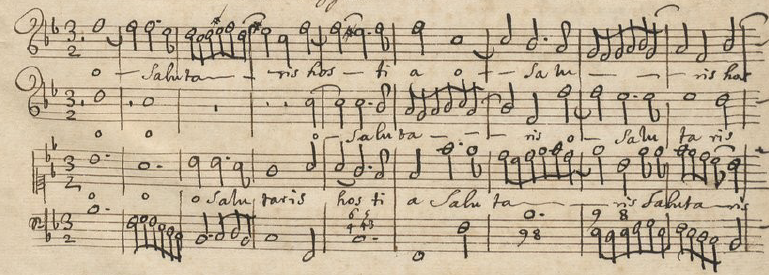 3 2
o - Saluta - - ris hos - ti a o - Salu - - ris hos
3 2
o o o - Saluta - - - ris o - Salu ta ris
3 2
o o o Salutaris hos ti a Saluta - ris Saluta - ris
3 2
6 5 9 8
4 43 9 8